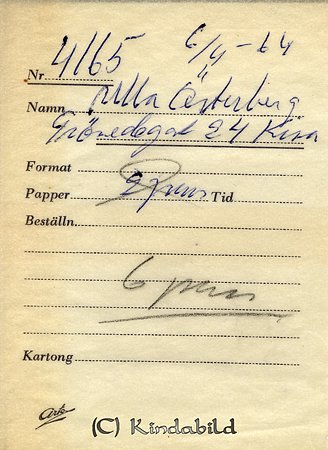 Nr 4165 6/4-64
Namn Ulla Österberg
24 Kisa
Format
Papper Tid
Beställn.
6
Kartong
(C) Kindabild